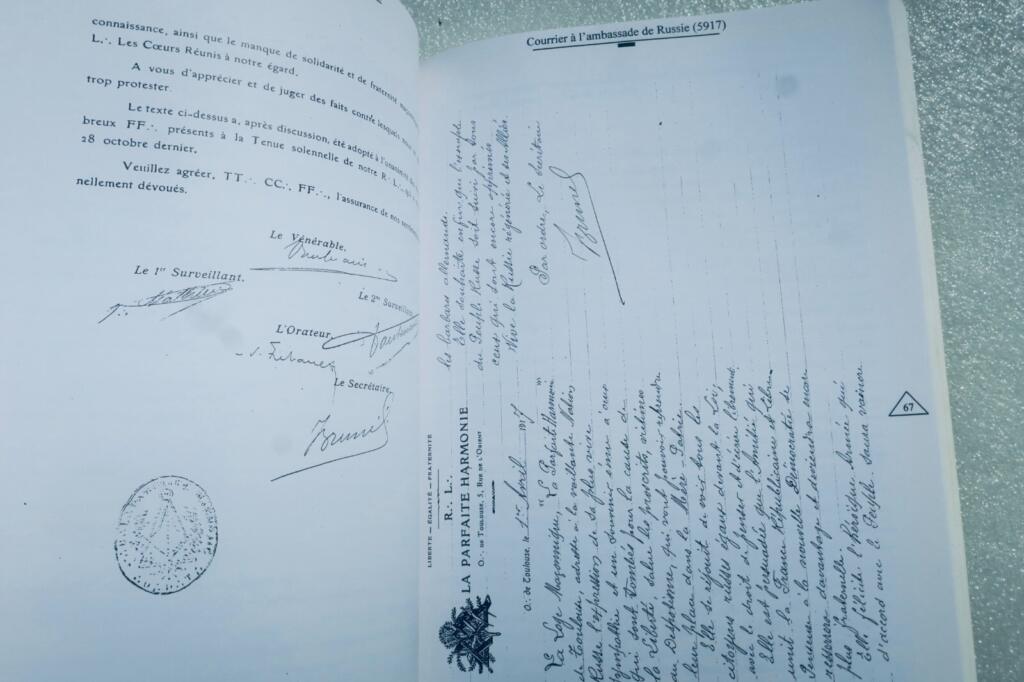 connaissance, ainsi que le manque de solidarité et de fraternité
L∴ Les Cœurs Réunis à notre égard.
A vous d'apprécier et de juger des faits contre lesquels
trop protester.
Le texte ci-dessus a, après discussion, été adopté à l'unanimité
breux FF∴ présents à la Tenue solennelle de notre R∴ L∴
28 octobre dernier.
Veuillez agréer, TT∴ CC∴ FF∴, l'assurance de nos
nellement dévoués.
Le Vénérable,
Le 1er Surveillant,
Le 2e Surveillant
L'Orateur,
Le Secrétaire,
Brunel
Courrier à l'ambassade de Russie (5917)
LIBERTÉ — ÉGALITÉ — FRATERNITÉ
R∴ L∴
LA PARFAITE HARMONIE
O∴ DE TOULOUSE, 5, RUE DE L'ORIENT
O∴ de Toulouse, le 1er Avril 1917
La Loge Maçonnique, "La Parfaite Harmonie"
de Toulouse, adresse à la vaillante Nation
Russe l'expression de sa plus vive
sympathie et un souvenir ému à ceux
qui sont tombés pour la cause de
la Liberté, salue les proscrits, victimes
du Despotisme, qui vont pouvoir reprendre
leur place dans la Mère-Patrie.
Elle se réjouit de voir tous les
citoyens russes égaux devant la Loi,
avec le droit de penser et d'écrire librement.
Elle est persuadée que l'amitié qui
unit la France Républicaine et Libre
Penseuse à la nouvelle Démocratie se
resserrera davantage et deviendra encore
plus fraternelle.
Elle félicite l'héroïque Armée qui
d'accord avec le Peuple saura vaincre
les barbares allemands.
Elle souhaite enfin que l'exemple
du Peuple Russe soit suivi par tous
ceux qui sont encore opprimés.
Vive la Russie régénérée et
Par ordre, Le Secrétaire
Brunel
67